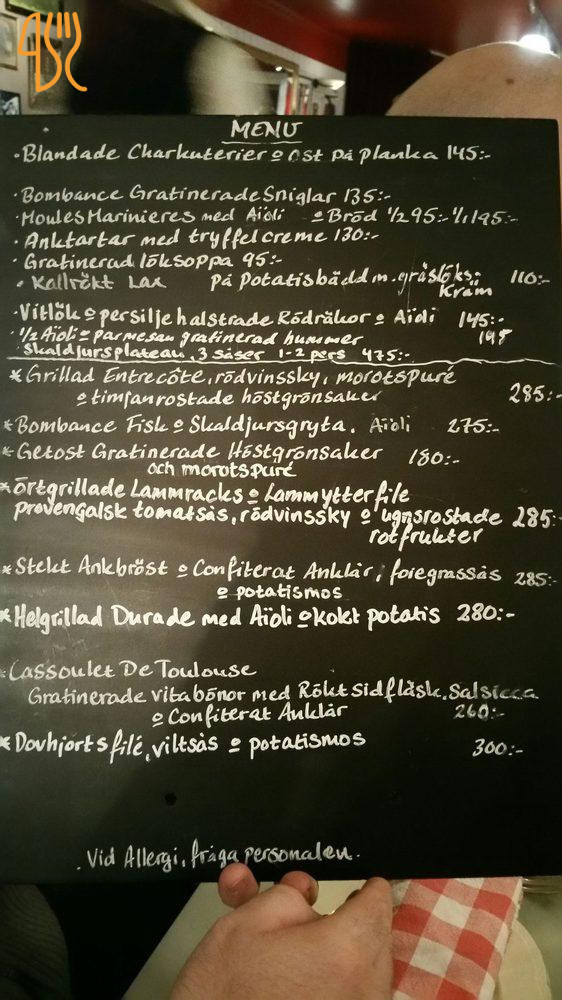 MENU
· Blandade Charkuterier o Ost på planka 145:-
· Bombance Gratinerade Sniglar 135:-
· Moules Marinieres med Aïoli o Bröd 1/2 95:- 1/1 195:-
· Anktartar med tryffelcreme 130:-
· Gratinerad löksoppa 95:-
· Kallrökt Lax på Potatisbädd m. gräslöks- 110:-
Kräm
· Vitlök o persilje halstrade Rödräkor o Aïoli 145:-
· 1/2 Aïoli o parmesan gratinerad hummer 195
Skaldjursplateau, 3 såser 1-2 pers 475:-
* Grillad Entrecôte, rödvinssky, morotspuré
o timjanrostade höstgrönsaker 285:-
* Bombance Fisk o Skaldjursgryta. Aïoli 275:-
* Getost Gratinerade Höstgrönsaker 180:-
och morotspuré
* Örtgrillade Lammracks o Lammytterfile
provengalsk tomatsås, rödvinssky o ugnsrostade 285:-
rotfrukter
* Stekt Ankbröst o Confiterat Anklår, foiegrassås 285:-
o potatismos
* Helgrillad Durade med Aïoli o kokt potatis 280:-
* Cassoulet De Toulouse
Gratinerade vita bönor med Rökt sidfläsk, Salsicca
o Confiterat Anklår 260:-
* Dovhjortsfilé, viltsås o potatismos 300:-
. Vid Allergi, fråga personalen.